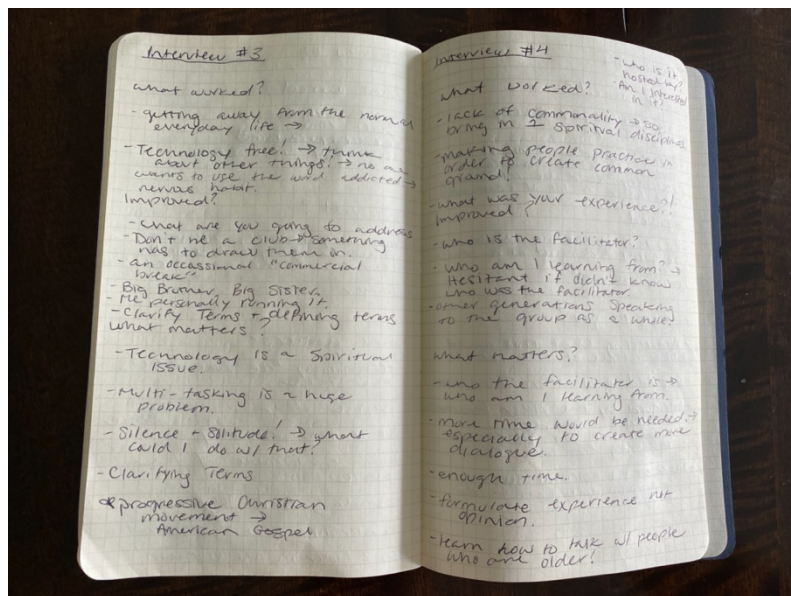 Interview #3
what worked?
- getting away from the normal
everyday life →
- Technology free! → think
about other things! → no one
wants to use the word addicted →
nervous habit.
Improved?
- what are you going to address
- Don't be a club → something
has to draw them in.
- an occassional "commercial
break"
- Big Brother, Big Sister.
- Me personally running it.
- Clarify Terms + defining terms
what matters?
- Technology is a Spiritual
issue.
- Multi-tasking is a huge
problem.
- Silence + Solitude! → what
could I do w/ that?
- Clarifying Terms
progressive Christian
movement →
American Gospel
Interview #4
- who is it
hosted by?
Am I interested
in it?
what worked?
- lack of commonality → so
bring in 1 spiritual discipline
- making people practice in
order to create common
ground!
- what was your experience?!
Improved?
- who is the facilitator?
- who am I learning from? →
Hesitant if didn't know
who was the facilitator
- other generations speaking
to the group as a whole!
what matters?
- who the facilitator is →
who am I learning from.
- more time would be needed →
especially to create more
dialogue.
- enough time.
- formulate experience not
opinion.
- learn how to talk w/ people
who are older!